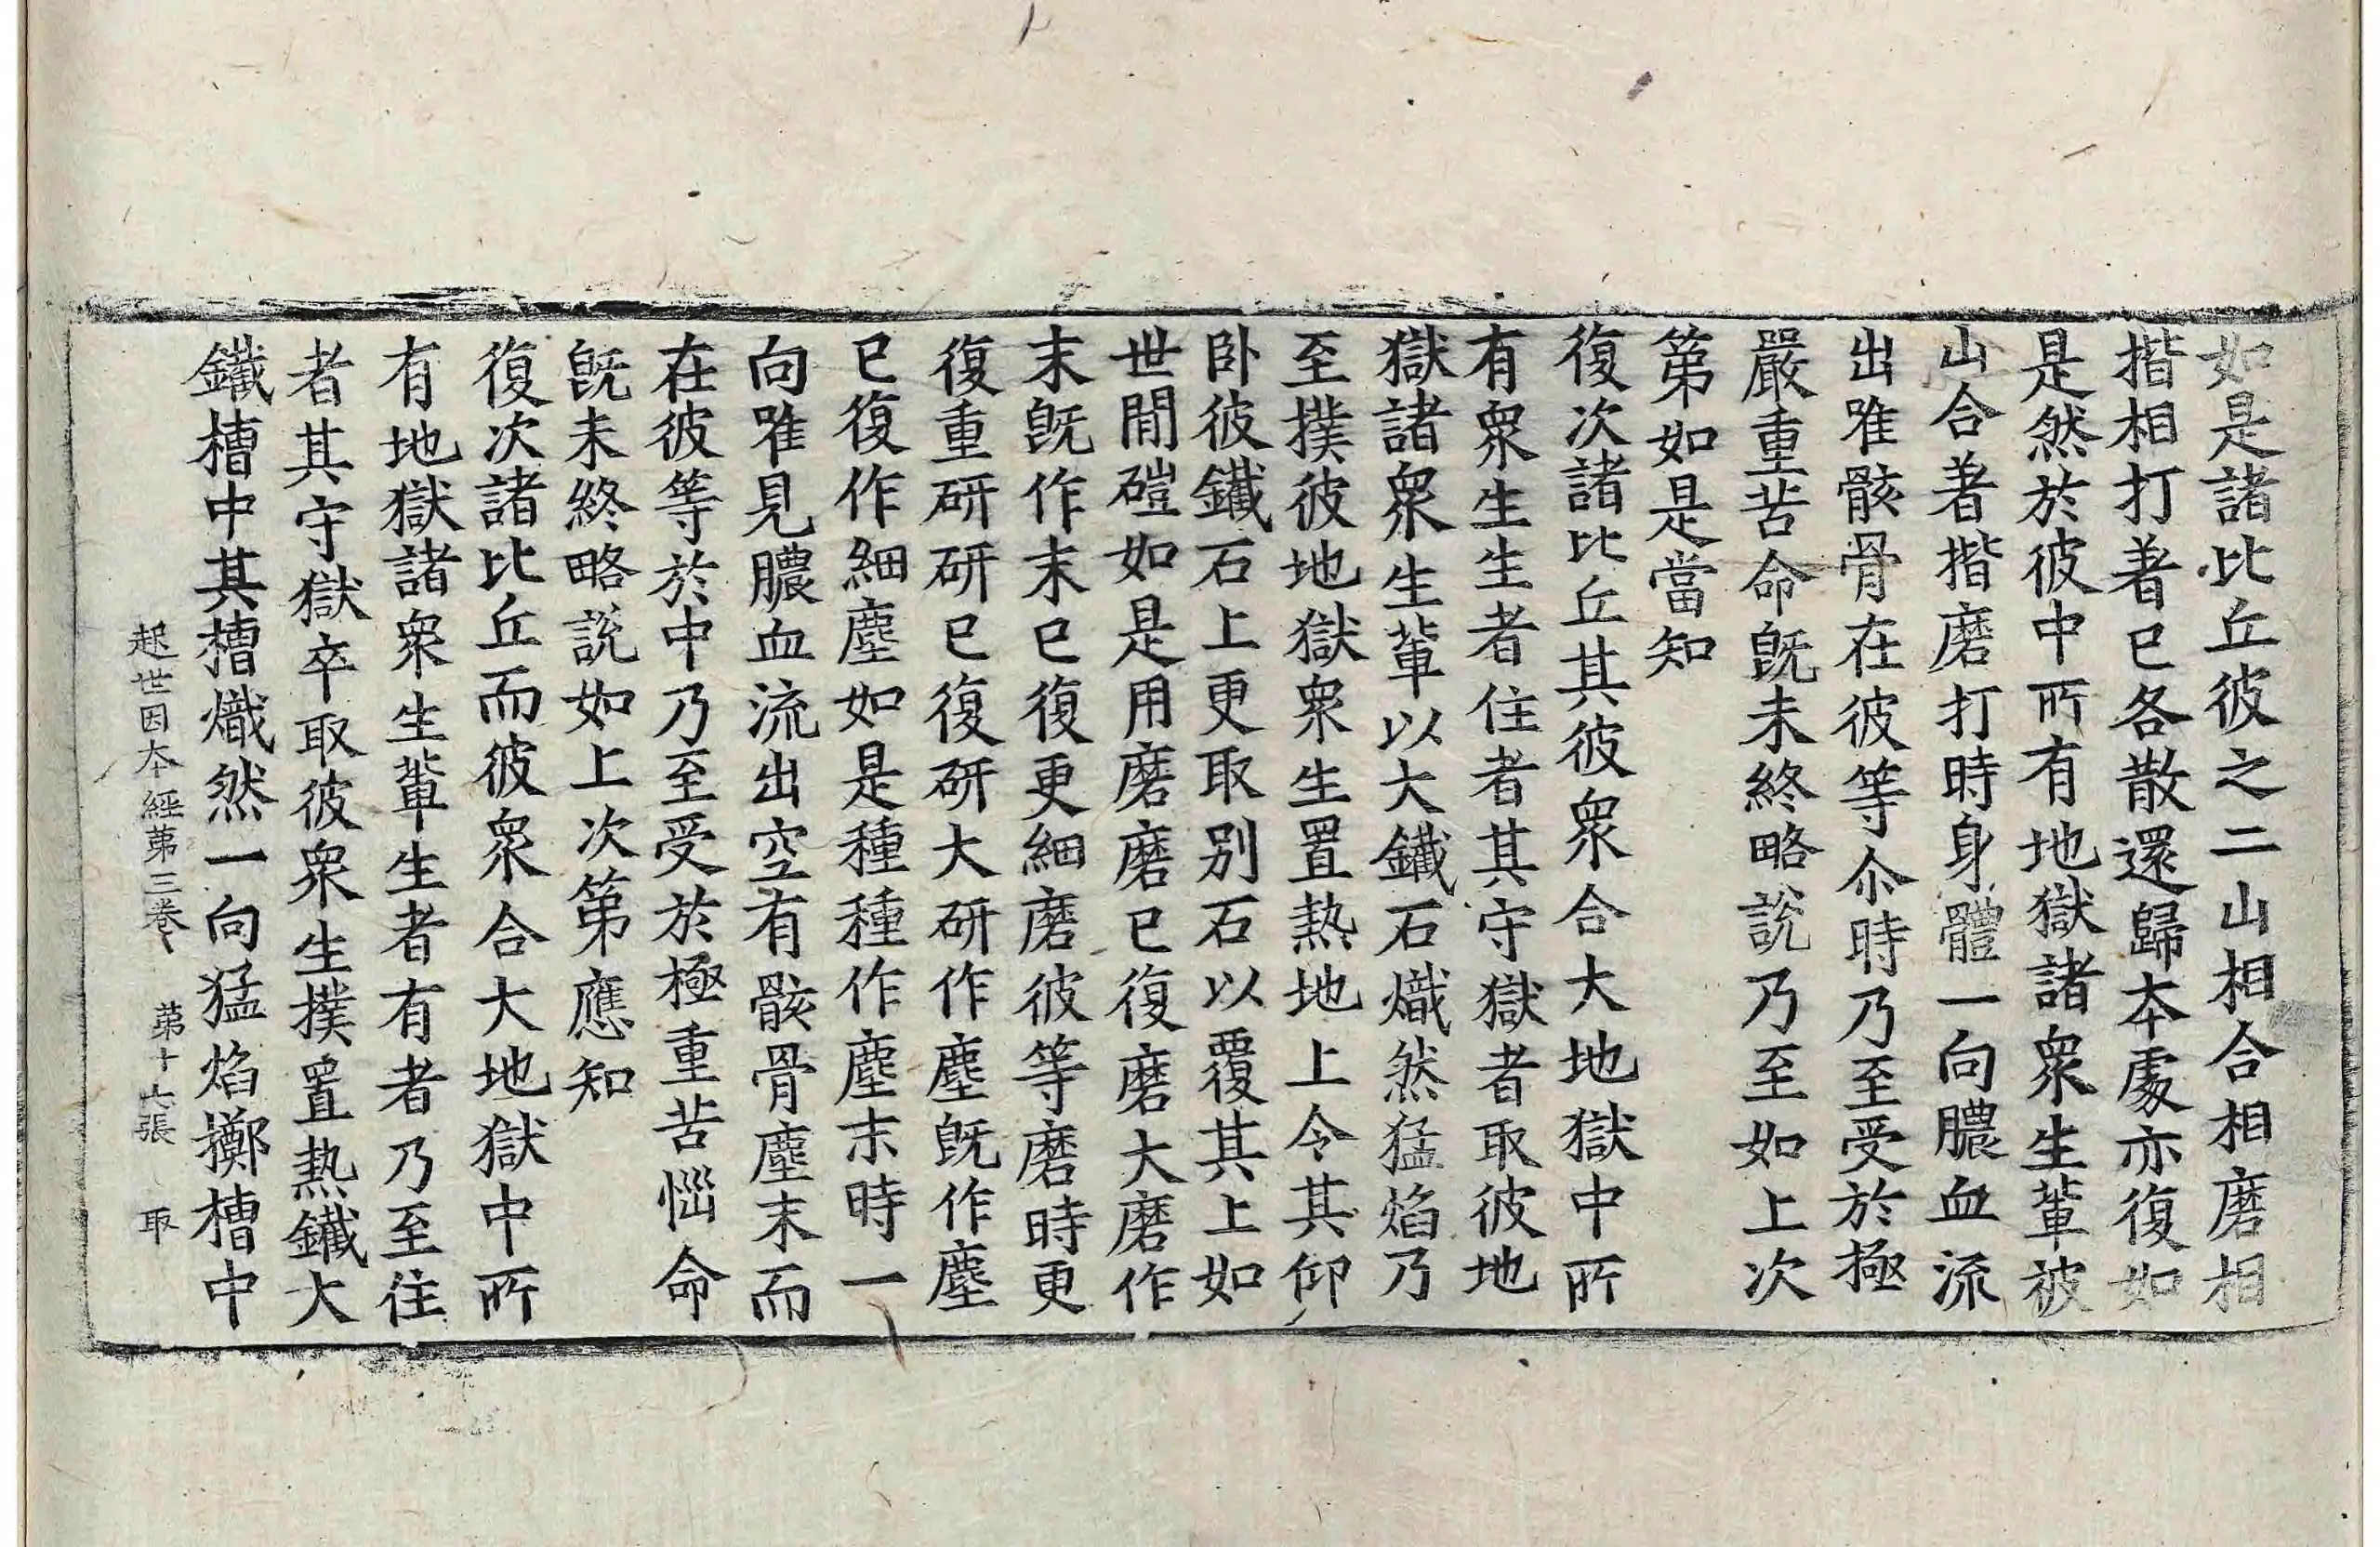 如是諸比丘彼之二山相合相磨相
揩相打著已各散還歸本處亦復如
是然於彼中所有地獄諸衆生輩彼
山合著揩磨打時身體一向膿血流
出唯骸骨在彼等尒時乃至受於極
嚴重苦命旣未終略說乃至如上次
第如是當知
復次諸比丘其彼衆合大地獄中所
有衆生生者住者其守獄者取彼地
獄諸衆生輩以大鐵石熾然猛焰乃
至撲彼地獄衆生置熱地上令其仰
卧彼鐵石上更取別石以覆其上如
世間磑如是用磨磨已復磨大磨作
末旣作末已復更細磨彼等磨時更
復重研研已復研大研作塵旣作塵
已復作細塵如是種種作塵末時一
向唯見膿血流出空有骸骨塵末而
在彼等於中乃至受於極重苦惱命
旣未終略說如上次第應知
復次諸比丘而彼衆合大地獄中所
有地獄諸衆生輩生者有者乃至住
者其守獄卒取彼衆生撲置熱鐵大
鐵槽中其槽熾然一向猛焰擲槽中
起世因本經第三卷 第十六張 取